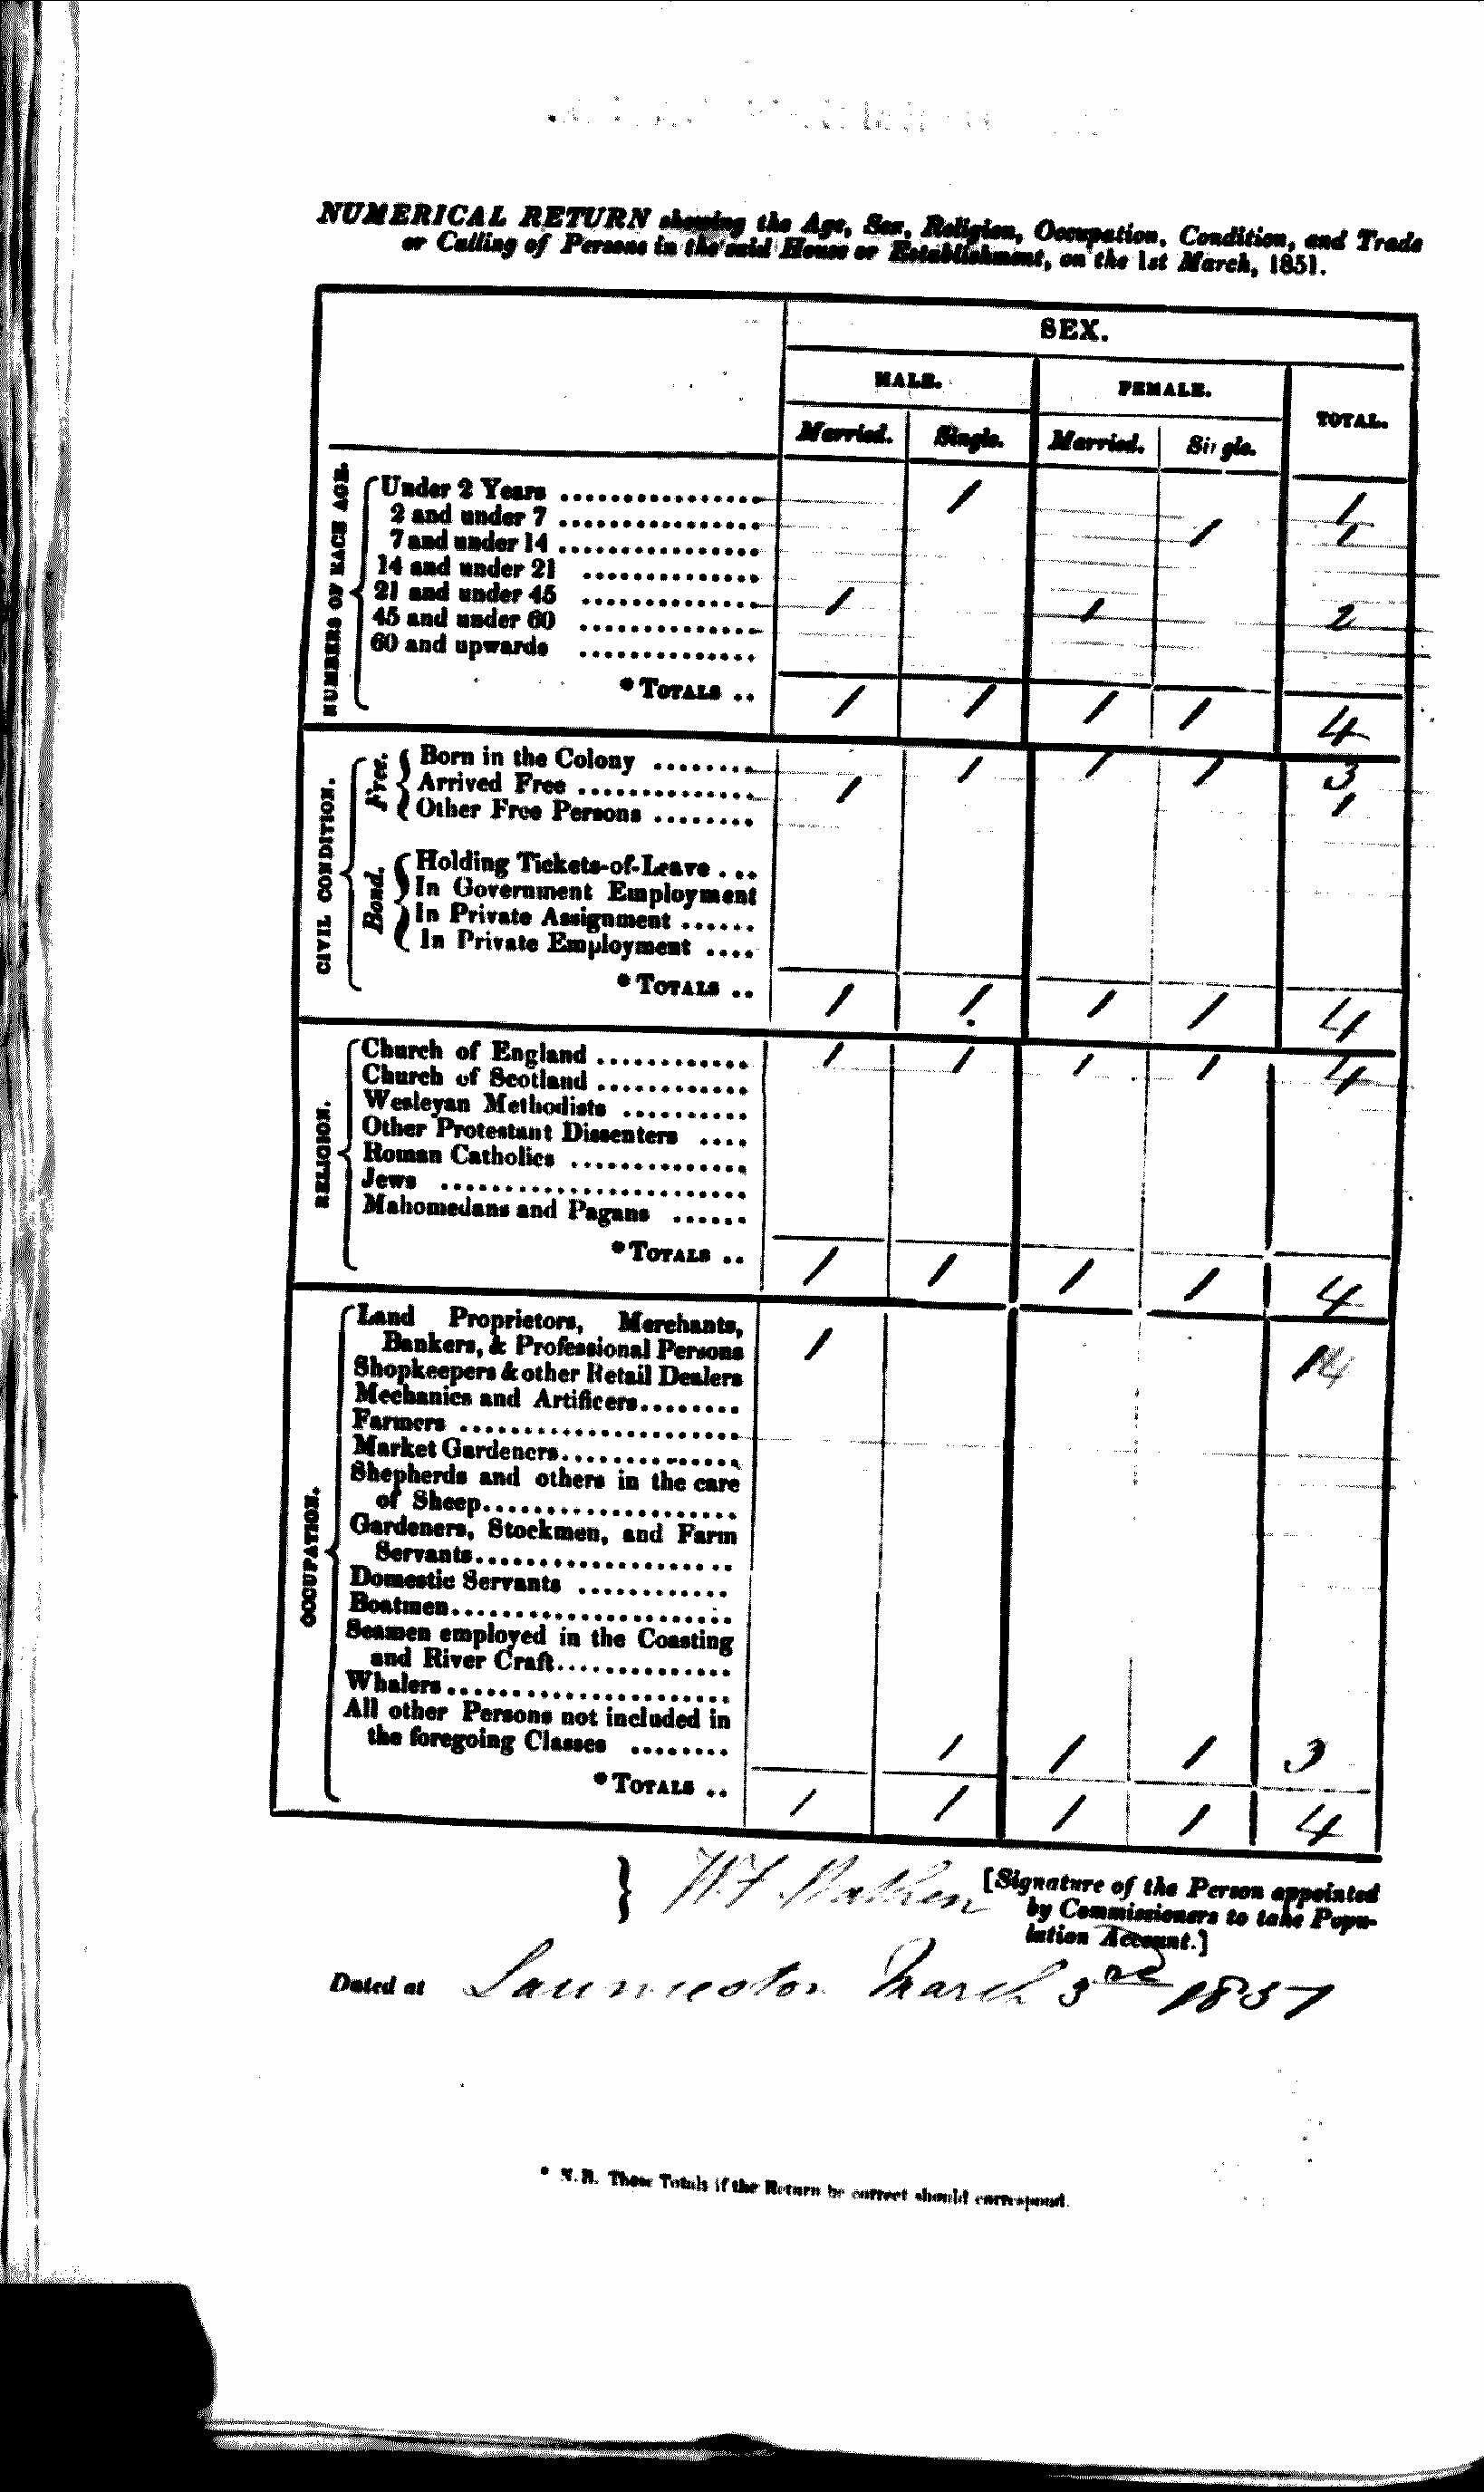 NUMERICAL RETURN shewing the Age, Sex, Religion, Occupation, Condition, and Trade
or Calling of Persons in the said House or Establishment, on the 1st March, 1851.
SEX.
MALE. FEMALE. TOTAL.
Married. Single. Married. Single.
NUMBERS OF EACH AGE.
Under 2 Years ................ 1 1
2 and under 7 ................ 1 1
7 and under 14 ................
14 and under 21 ..............
21 and under 45 .............. 1 1 2
45 and under 60 ..............
60 and upwards ..............
* TOTALS .. 1 1 1 1 4
CIVIL CONDITION.
Free.
Born in the Colony ........ 1 1 1 3
Arrived Free .............. 1 1
Other Free Persons ........
Bond.
Holding Tickets-of-Leave ...
In Government Employment
In Private Assignment ......
In Private Employment ....
* TOTALS .. 1 1 1 1 4
RELIGION.
Church of England ............ 1 1 1 1 4
Church of Scotland ............
Wesleyan Methodists ..........
Other Protestant Dissenters ....
Roman Catholics ..............
Jews ........................
Mahomedans and Pagans ......
* TOTALS .. 1 1 1 1 4
OCCUPATION.
Land Proprietors, Merchants,
Bankers, & Professional Persons 1 1
Shopkeepers & other Retail Dealers
Mechanics and Artificers........
Farmers ......................
Market Gardeners..............
Shepherds and others in the care
of Sheep....................
Gardeners, Stockmen, and Farm
Servants....................
Domestic Servants ............
Boatmen......................
Seamen employed in the Coasting
and River Craft..............
Whalers......................
All other Persons not included in
the foregoing Classes ........ 1 1 1 3
* TOTALS .. 1 1 1 1 4
[Signature of the Person appointed
by Commissioners to take Popu-
lation Account.]
Dated at Launceston March 3rd 1851
* N.B. These Totals if the Return be correct should correspond.